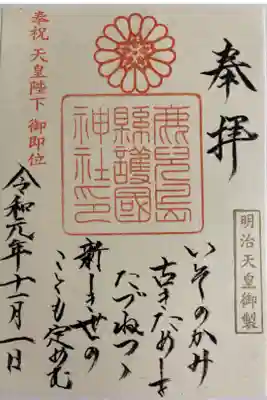 奉拝
明治天皇御製
鹿兒島
縣護國
神社印
いそのかみ
古きためしを
たづねつゝ
新しき世の
ことも定めむ
奉祝 天皇陛下 御即位
令和元年十一月一日